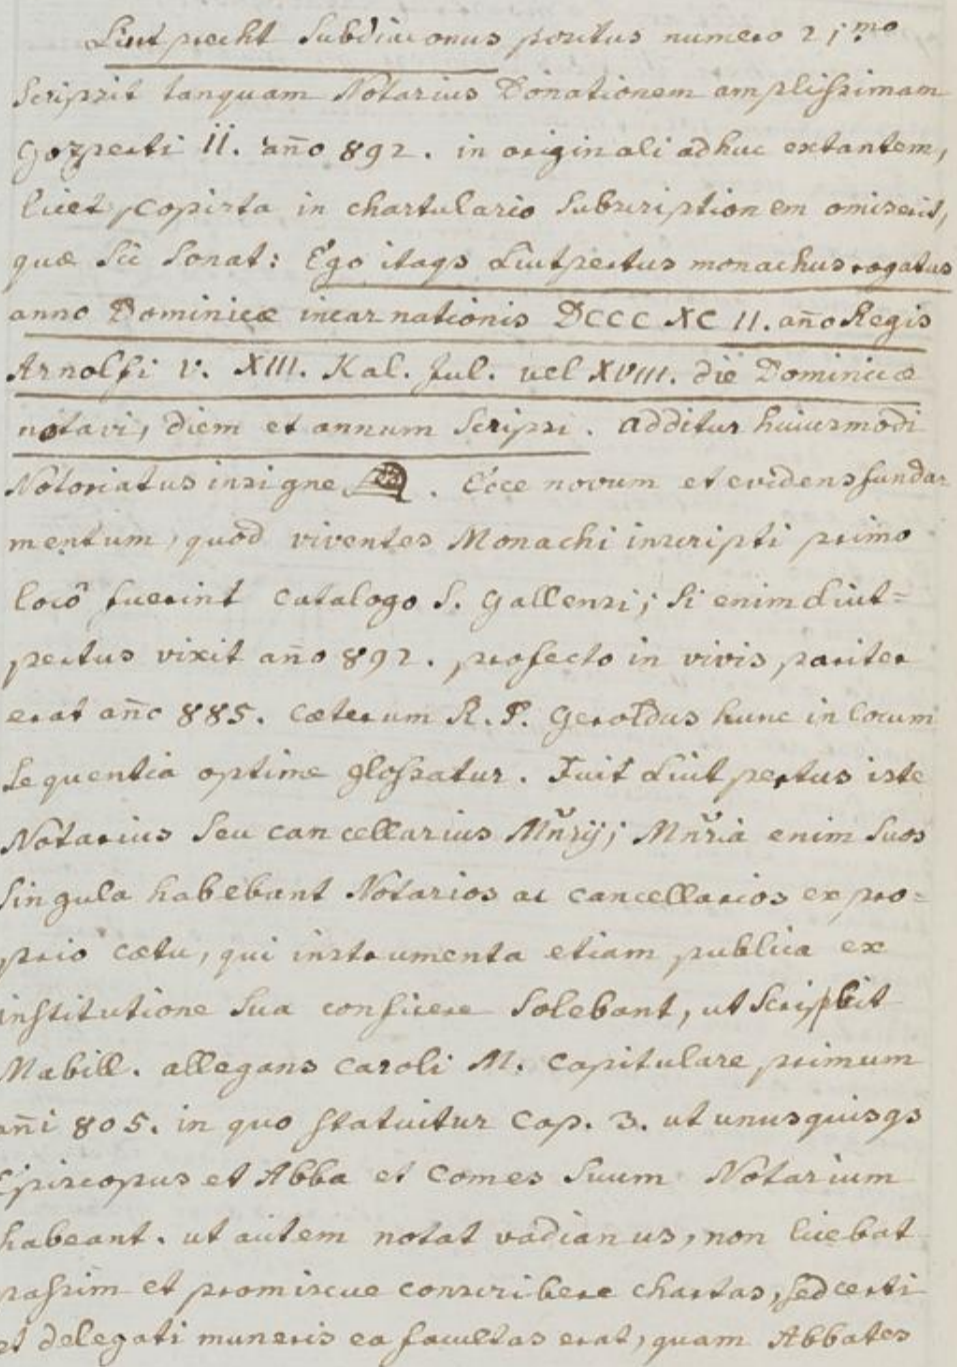 Liutprecht Subdiaconus positus numero 21mo
Scripsit tanquam Notarius Donationem amplissimam
Gozperti II. año 892. in originali adhuc extantem,
licet copista in chartulario Subscriptionem omiserit,
quæ Sic Sonat: Ego itaqs Liutpertus monachus rogatus
anno Dominicæ incarnationis DCCC XC II. año Regis
Arnolfi V. XIII. Kal. Jul. vel XVIII. die Dominicæ
notavi, diem et annum Scripsi. additur huiusmodi
Notariatus insigne . Ecce novum et evidens funda-
mentum, quod viventes Monachi inscripti primo
locô fuerint Catalogo S. Gallensi; Si enim Liut=
pertus vixit año 892. profecto in vivis pariter
erat año 885. Cæterum R. P. Geroldus hunc in locum
Sequentia optime glossatur. Fuit Liutpertus iste
Notarius Seu cancellarius Mñrij; Mñria enim Suos
Singula habebant Notarios ac Cancellarios ex pro=
prio cætu, qui instrumenta etiam publica ex
institutione Sua conficere Solebant, ut Scribit
Mabill. allegans Caroli M. Capitulare primum
añi 805. in quo Statuitur Cap. 3. ut unusquisqs
Episcopus et Abba et Comes Suum Notarium
habeant. ut autem notat Vadianus, non licebat
passim et promiscue conscribere chartas, sed certi
et delegati muneris ea facultas erat, quam Abbates